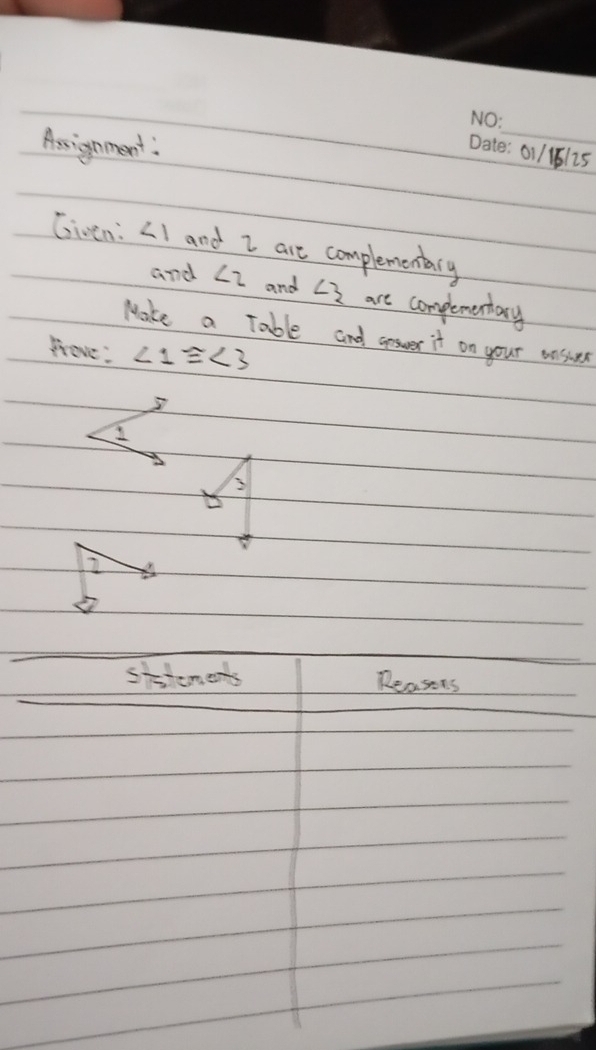 NO:
Date: 01/15/25
Assignment:
Given: <1 and 2 are complementary
and <2 and <3 are complementary
Make a Table and answer it on your answer
Prove: <1 ≅ <3
1
3
2
Statements Reasons